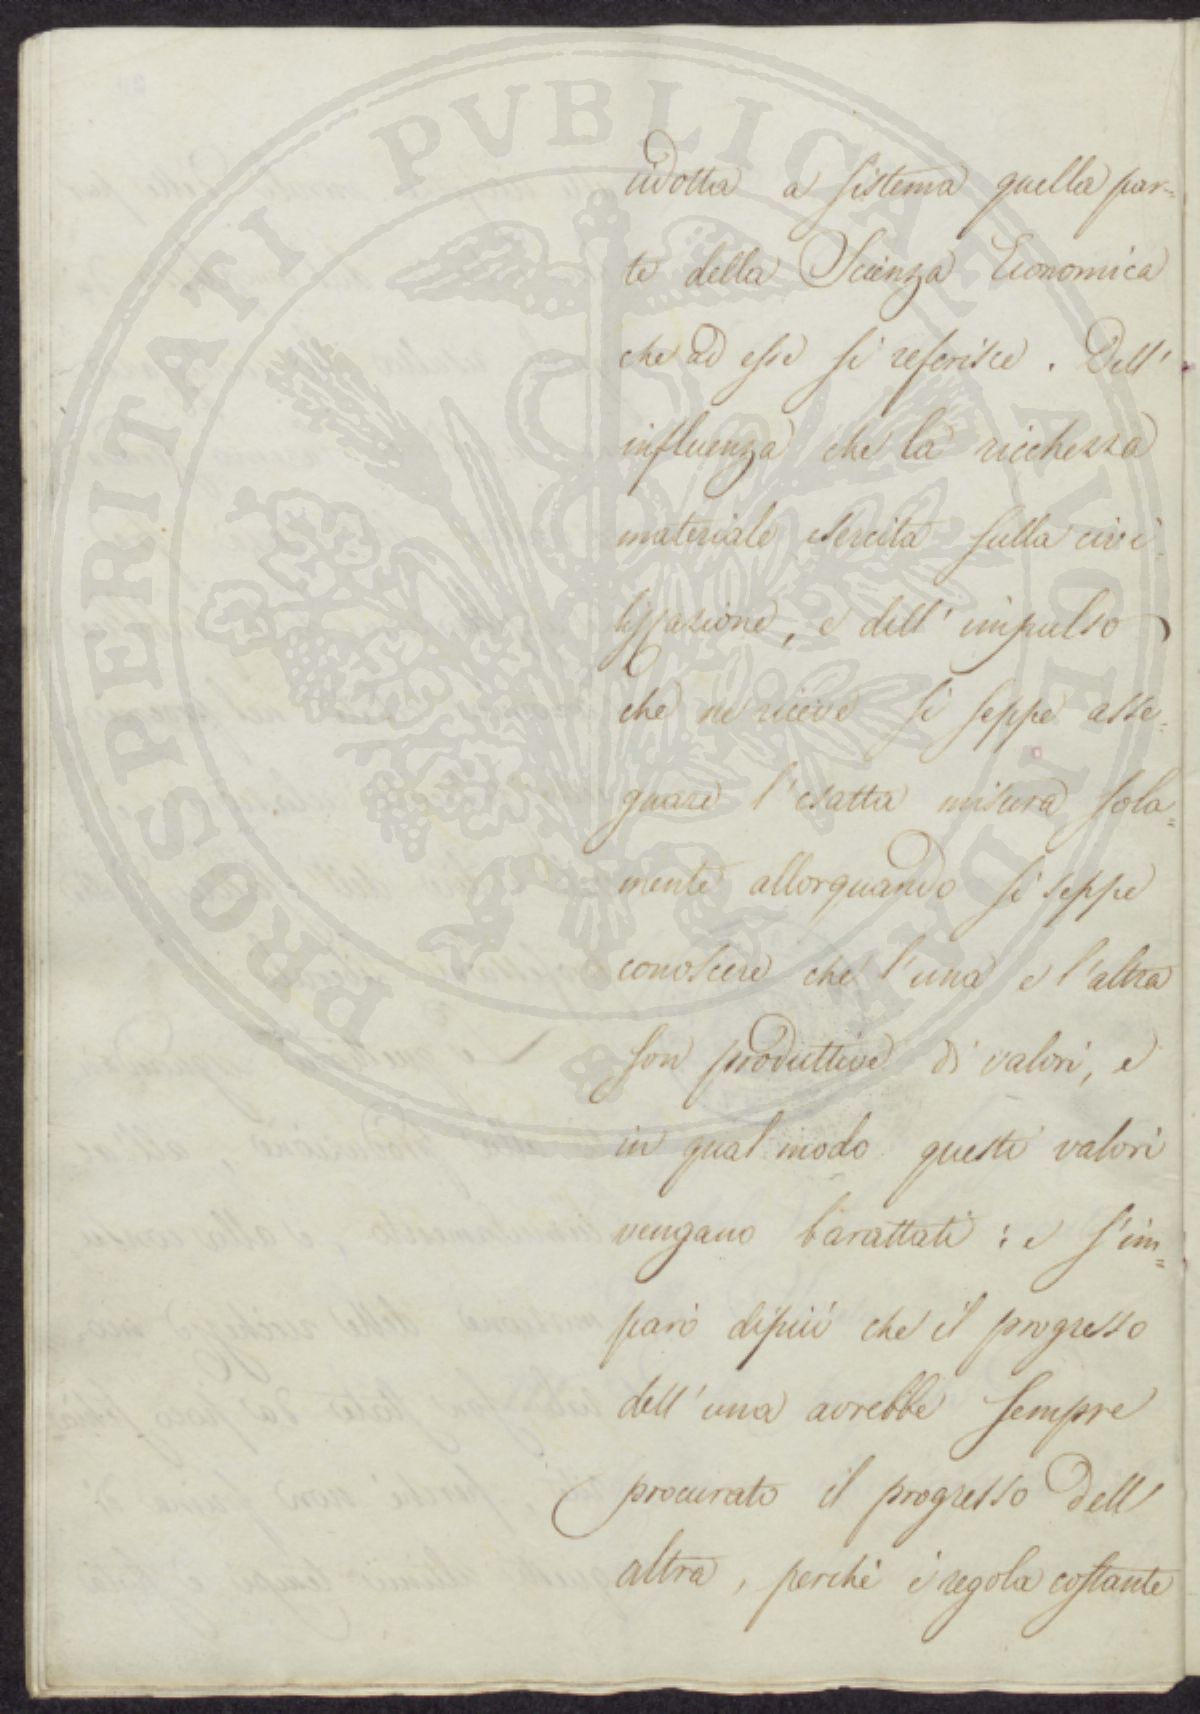 PROSPERITATI PUBLICAE AUGENDAE
ridotta a sistema quella par-
te della Scienza Economica
che ad esse si referisce. Dell'
influenza che la ricchezza
materiale esercita sulla civi-
lizzazione, e dell'impulso
che ne riceve si seppe asse-
gnare l'esatta misura sola=
mente allorquando si seppe
conoscere che l'una e l'altra
son produttive di valori, e
in qual modo questi valori
vengano barattati: e s'im=
parò dipiù che il progresso
dell'una avrebbe sempre
procurato il progresso dell'
altra, perché è regola costante